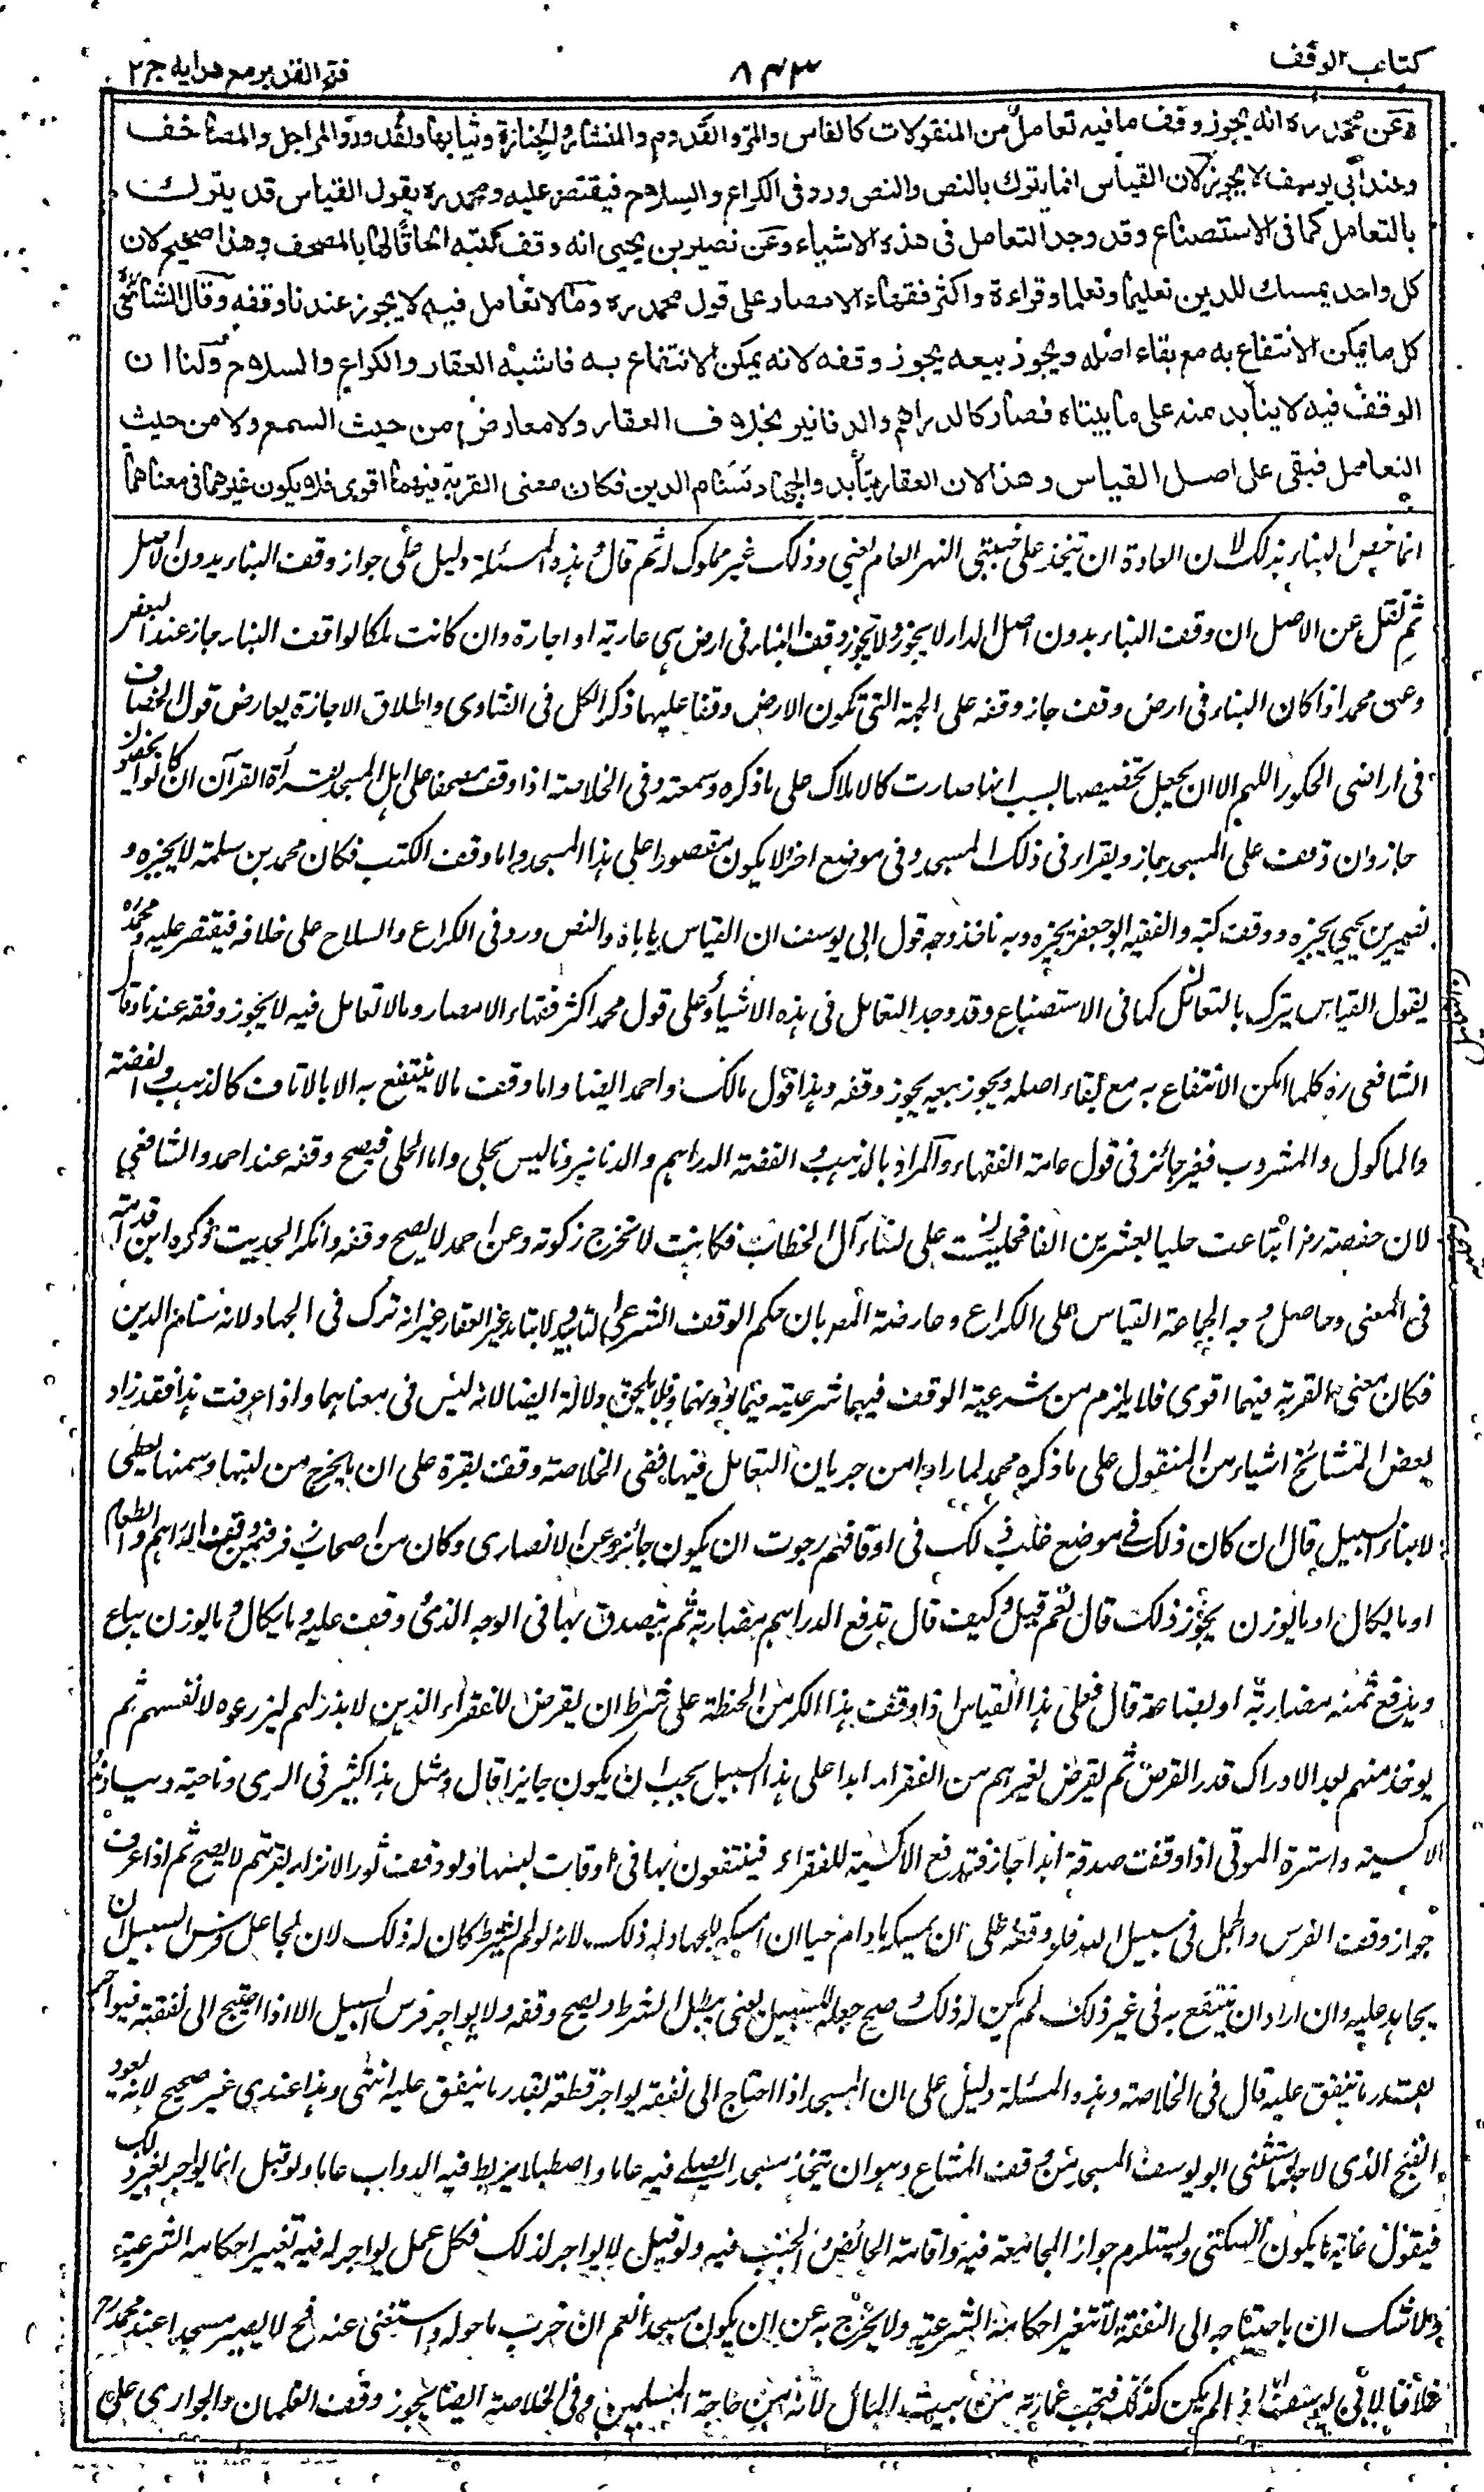 كتاب الوقف
٨٤٣
فتح القدير مع هدايه ج٢
وعن محمد ره انه يجوز وقف ما فيه تعامل من المنقولات كالفاس والمر والقدوم والمنشار والجنازة وثيابها والقدور والمراجل والمصاحف
وعند أبي يوسف لا يجوز لان القياس انما يترك بالنص والنص ورد في الكراع والسلاح فيقتصر عليه ومحمد ره يقول القياس قد يترك
بالتعامل كما في الاستصناع وقد وجد التعامل في هذه الاشياء وعن نصير بن يحيى انه وقف كتبه الحاقا لها بالمصحف وهذا صحيح لان
كل واحد يمسك للدين تعليما وتعلما وقراءة واكثر فقهاء الامصار على قول محمد ره وما لا تعامل فيه لا يجوز عندنا وقفه وقال الشافعي
كل ما يمكن الانتفاع به مع بقاء اصله ويجوز بيعه يجوز وقفه لانه يمكن الانتفاع به فاشبه العقار والكراع والسلاح ولنا ان
الوقف فيه لا يتأبد منه على ما بيناه فصار كالدراهم والدنانير بخلاف العقار ولا معارض من حيث السمع ولا من حيث
التعامل فبقي على اصل القياس وهذا لان العقار يتأبد والجهاد سنام الدين فكان معنى القربة فيهما اقوى فلا يكون غيرهما في معناهما
انما خص البناء بذلك لان العادة ان تتخذ على جنبتي النهر العام يعني وذلك غير مملوك له ثم قال وهذه المسئلة دليل على جواز وقف البناء بدون الاصل
ثم نقل عن الاصل ان وقف البناء بدون اصل الدار لا يجوز ولا يجوز وقف البناء في ارض هي عارية او اجارة وان كانت ملكا لواقف البناء جاز عند البعض
وعن محمد اذا كان البناء في ارض وقف جاز وقفه على الجهة التي تكون الارض وقفا عليها ذكر الكل في الفتاوى واطلاق الاجازة يعارض قول الخصاف
في اراضي الحكور اللهم الا ان يجعل تخصيصها بسبب انها صارت كالاملاك على ما ذكره وسمعته وفي الخلاصة اذا وقف مصحفا على اهل المسجد لقرأة القرآن ان كانوا يحصون
جاز وان وقف على المسجد جاز ويقراء في ذلك المسجد وفي موضع اخر لا يكون مقصورا على هذا المسجد واما وقف الكتب فكان محمد بن سلمة لا يجيزه و
نصير بن يحيى يجيزه ووقف كتبه والفقيه ابو جعفر يجيزه وبه ناخذ وجه قول ابي يوسف ان القياس ياباه والنص ورد في الكراع والسلاح على خلافه فيقتصر عليه ومحمد ره
يقول القياس يترك بالتعامل كما في الاستصناع وقد وجد التعامل في هذه الاشياء وعلى قول محمد اكثر فقهاء الامصار وما لا تعامل فيه لا يجوز وقفه عندنا وقال
الشافعي ره كلما امكن الانتفاع به مع بقاء اصله ويجوز بيعه يجوز وقفه وهذا قول مالك واحمد ايضا واما وقف ما لا ينتفع به الا بالاتلاف كالذهب والفضة
والماكول والمشروب فغير جائز في قول عامة الفقهاء والمراد بالذهب والفضة الدراهم والدنانير وما ليس بحلي واما الحلي فيصح وقفه عند احمد والشافعي
لان حفصة رض ابتاعت حليا بعشرين الفا فحبسته على نساء آل الخطاب فكانت لا تخرج زكوته وعن احمد لا يصح وقفه وانكر الحديث ذكره ابن قدامة
في المغني وحاصل وجه الجماعة القياس على الكراع ومعارضة المصر بان حكم الوقف الشرعي التابيد ولا يتابد غير العقار غير انه ترك في الجهاد لانه سنام الدين
فكان معنى القربة فيهما اقوى فلا يلزم من شرعية الوقف فيهما شرعيته فيما دونهما ولا يلحق دلالة ايضا لانه ليس في معناهما واذا عرفت هذا فقد زاد
بعض المشائخ اشياء من المنقول على ما ذكره محمد لما راوا من جريان التعامل فيها ففي الخلاصة وقف بقرة على ان ما يخرج من لبنها وسمنها يعطى
لابناء السبيل قال ان كان ذلك في موضع غلب ذلك في اوقافهم رجوت ان يكون جائزا وعن الانصاري وكان من اصحاب زفر فيمن وقف الدراهم والطعام
او ما يكال او ما يوزن يجوز ذلك قال نعم قيل وكيف قال تدفع الدراهم مضاربة ثم يتصدق بها في الوجه الذي وقف عليه وما يكال وما يوزن يباع
ويدفع ثمنه مضاربة او بضاعة قال فعلى هذا القياس اذا وقف هذا الكر من الحنطة على شرط ان يقرض للفقراء الذين لا بذر لهم ليزرعوه لانفسهم ثم
يوخذ منهم بعد الادراك قدر القرض ثم يقرض لغيرهم من الفقراء ابدا على هذا السبيل يجب ان يكون جايزا قال ومثل هذا كثير في الري وناحية
الاكسية واسترة الموتى اذا وقفت صدقة ابدا جاز فتدفع الاكسية للفقراء فينتفعون بها في اوقات لبسها ولو وقف ثور الانزاء بقرتهم لا يصح ثم اذا عرف
جواز وقف الفرس والجمل في سبيل الله فلو وقفه على ان يمسكه ما دام حيا ان امسكه للجهاد له ذلك لانه لو لم يشترط كان له ذلك لان لجاعل فرس السبيل ان
يجاهد عليه وان اراد ان ينتفع به في غير ذلك لم يكن له ذلك وصح جعله للسبيل يعني يبطل الشرط ويصح وقفه ولا يواجر فرس السبيل الا اذا احتيج الى نفقته فيواجر
بقدر ما ينفق عليه قال في الخلاصة وهذه المسئلة دليل على ان المسجد اذا احتاج الى نفقة يواجر قطعة بقدر ما ينفق عليه انتهى وهذا عندي غير صحيح لانه يعود
القبح الذي لاجله استثنى ابو يوسف المسجد من وقف المشاع وهو ان يتخذ مسجدا يصلى فيه عاما واصطبلا يربط فيه الدواب عاما ولو قيل انما يواجر لغير ذلك
فيقول غاية ما يكون السكنى ويستلزم جواز المجامعة فيه واقامة الحائض والجنب فيه ولو قيل لا يواجر لذلك فكل عمل يواجر له فيه تغيير احكامه الشرعية
ولا شك ان باحتياجه الى النفقة لا تتغير احكامه الشرعية ولا يخرج به عن ان يكون مسجدا نعم ان خرب ما حوله واستغنى عنه فح لا يصير مسجدا عند محمد رح
خلافا لابي يوسف اذا لم يكن كذلك فتجب عمارته من بيت المال لانه من حاجة المسلمين وفي الخلاصة ايضا يجوز وقف الغلمان والجواري على